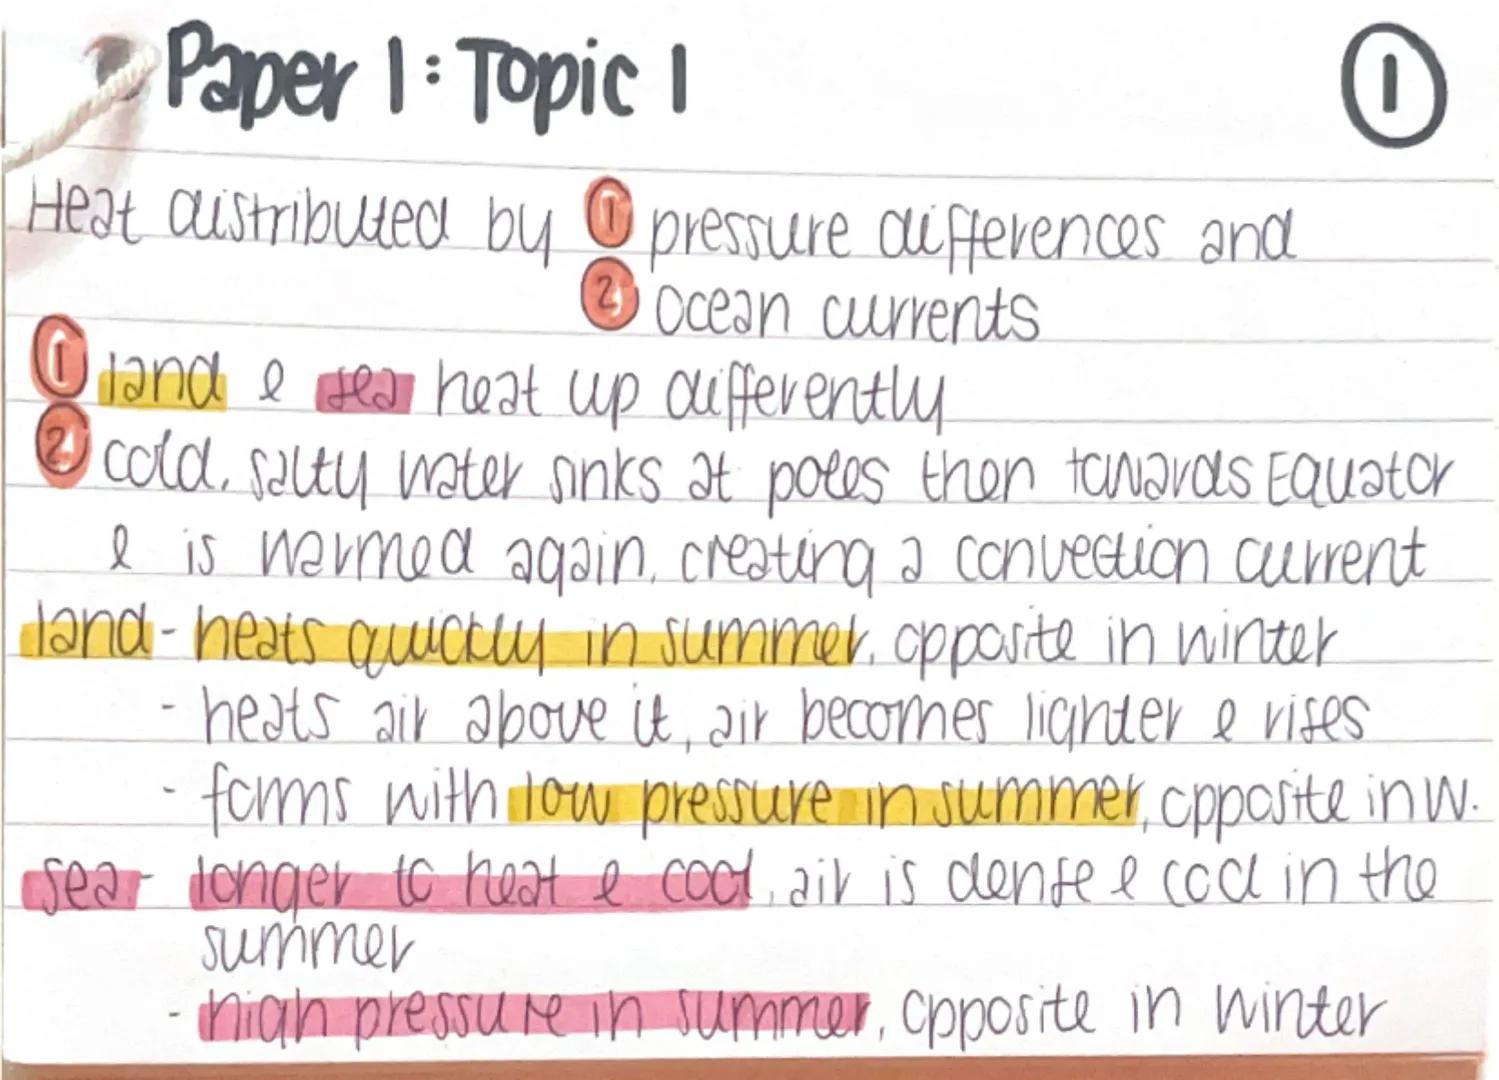 Paper 1: Topic 1
1
Heat distributed by 1 pressure differences and
2 ocean currents
1 land & sea heat up differently
2 cold, salty water sinks at poles then towards Equator
& is warmed again, creating a convection current
land - heats quickly in summer, opposite in winter
- heats air above it, air becomes lighter & rises
- forms with low pressure in summer, opposite in w.
sea - longer to heat & cool, air is dense & cool in the
summer
- high pressure in summer, opposite in winter